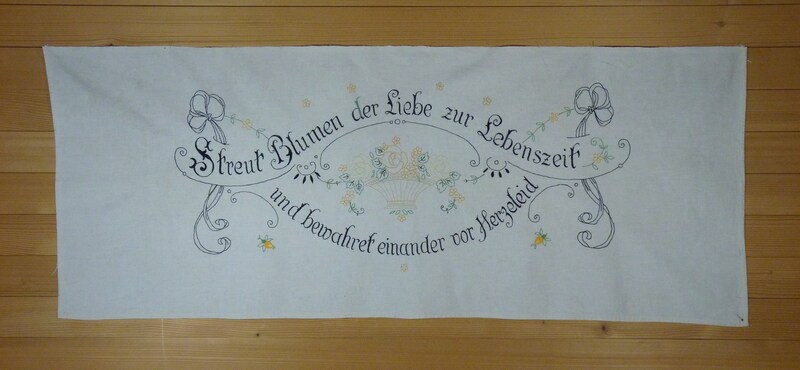 Streut Blumen der Liebe zur Lebenszeit
und bewahret einander vor Herzeleid